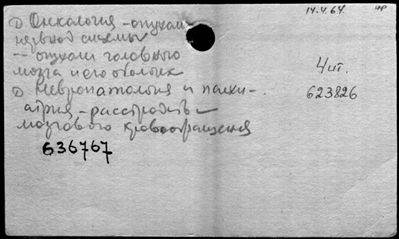 14.4.64 нр
1) Онкология - опухоли
нервной системы
-- опухоли головного
мозга и его оболочек
4 шт.
2) Невропатология и психи-
623826
атрия - расстройств
мозгового кровообращения
636767